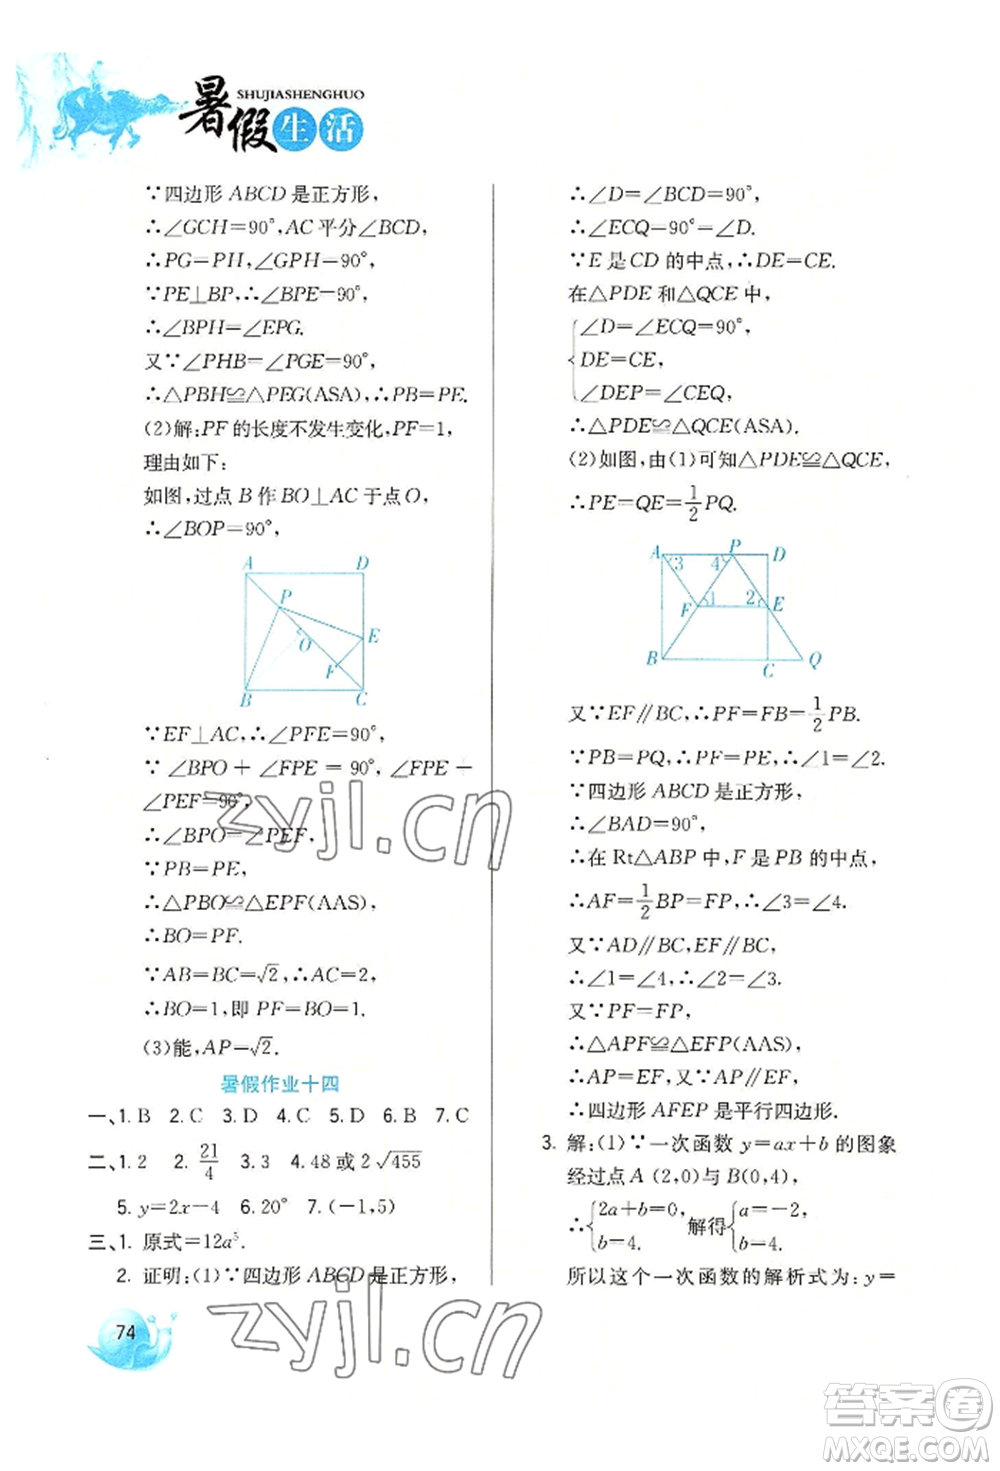 SHUJIASHENGHUO
暑假生活
∵四边形 ABCD 是正方形,
∴∠GCH=90°,AC 平分∠BCD,
∴PG=PH,∠GPH=90°,
∵PE⊥BP,∴∠BPE=90°,
∴∠BPH=∠EPG.
又∵∠PHB=∠PGE=90°,
∴△PBH≌△PEG(ASA),∴PB=PE.
(2)解:PF 的长度不发生变化,PF=1,
理由如下:
如图,过点 B 作 BO⊥AC 于点 O,
∴∠BOP=90°,
A D
P
O E
F
B C
∵EF⊥AC,∴∠PFE=90°,
∵ ∠BPO + ∠FPE = 90°, ∠FPE +
∠PEF=90°,
∴∠BPO=∠PEF,
∵PB=PE,
∴△PBO≌△EPF(AAS),
∴BO=PF.
∵AB=BC=√2,∴AC=2,
∴BO=1,即 PF=BO=1.
(3)能,AP=√2.
暑假作业十四
一、1. B 2. C 3. D 4. C 5. D 6. B 7. C
二、1. 2 2. 21/4 3. 3 4. 48 或 2√455
5. y=2x-4 6. 20° 7. (-1,5)
三、1. 原式=12a⁵.
2. 证明:(1)∵四边形 ABCD 是正方形,
∴∠D=∠BCD=90°,
∴∠ECQ=90°=∠D.
∵E 是 CD 的中点,∴DE=CE.
在△PDE 和△QCE 中,
∠D=∠ECQ=90°,
DE=CE,
∠DEP=∠CEQ,
∴△PDE≌△QCE(ASA).
(2)如图,由(1)可知△PDE≌△QCE,
∴PE=QE=1/2PQ.
A P D
3 4
F 1 2 E
B C Q
又∵EF∥BC,∴PF=FB=1/2PB.
∵PB=PQ,∴PF=PE,∴∠1=∠2.
∵四边形 ABCD 是正方形,
∴∠BAD=90°,
∴在 Rt△ABP 中,F 是 PB 的中点,
∴AF=1/2BP=FP,∴∠3=∠4.
又∵AD∥BC,EF∥BC,
∴∠1=∠4,∴∠2=∠3.
又∵PF=FP,
∴△APF≌△EFP(AAS),
∴AP=FE.又∵AP∥FE,
∴四边形 AFEP 是平行四边形.
3. 解:(1)∵一次函数 y=ax+b 的图象
经过点 A (2,0)与 B(0,4),
∴{2a+b=0, b=4. 解得{a=-2, b=4.
所以这个一次函数的解析式为:y=
74
zyjl.cn
zyjl.cn
答案圈
MXQE.COM